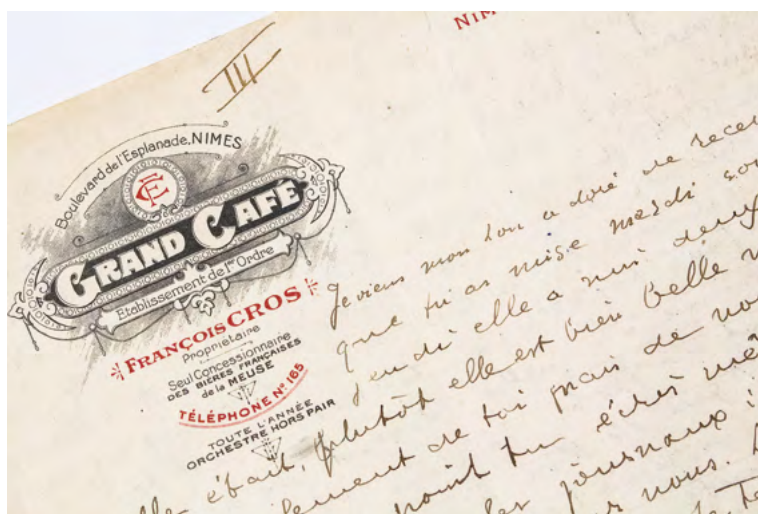 NIM
III
Boulevard de l'Esplanade, NIMES
FC
GRAND CAFÉ
Etablissement de 1er Ordre
FRANÇOIS CROS
Propriétaire
Seul Concessionnaire
DES BIÈRES FRANÇAISES
de la MEUSE
TÉLÉPHONE No 165
TOUTE L'ANNÉE
ORCHESTRE HORS PAIR
Je viens mon Lou adoré de rece
que tu as mise mardi soi
jeudi elle a mis deux
était, plutôt elle est bien belle
lement de toi mais de no
point tu écris mê
les journaux
nous.